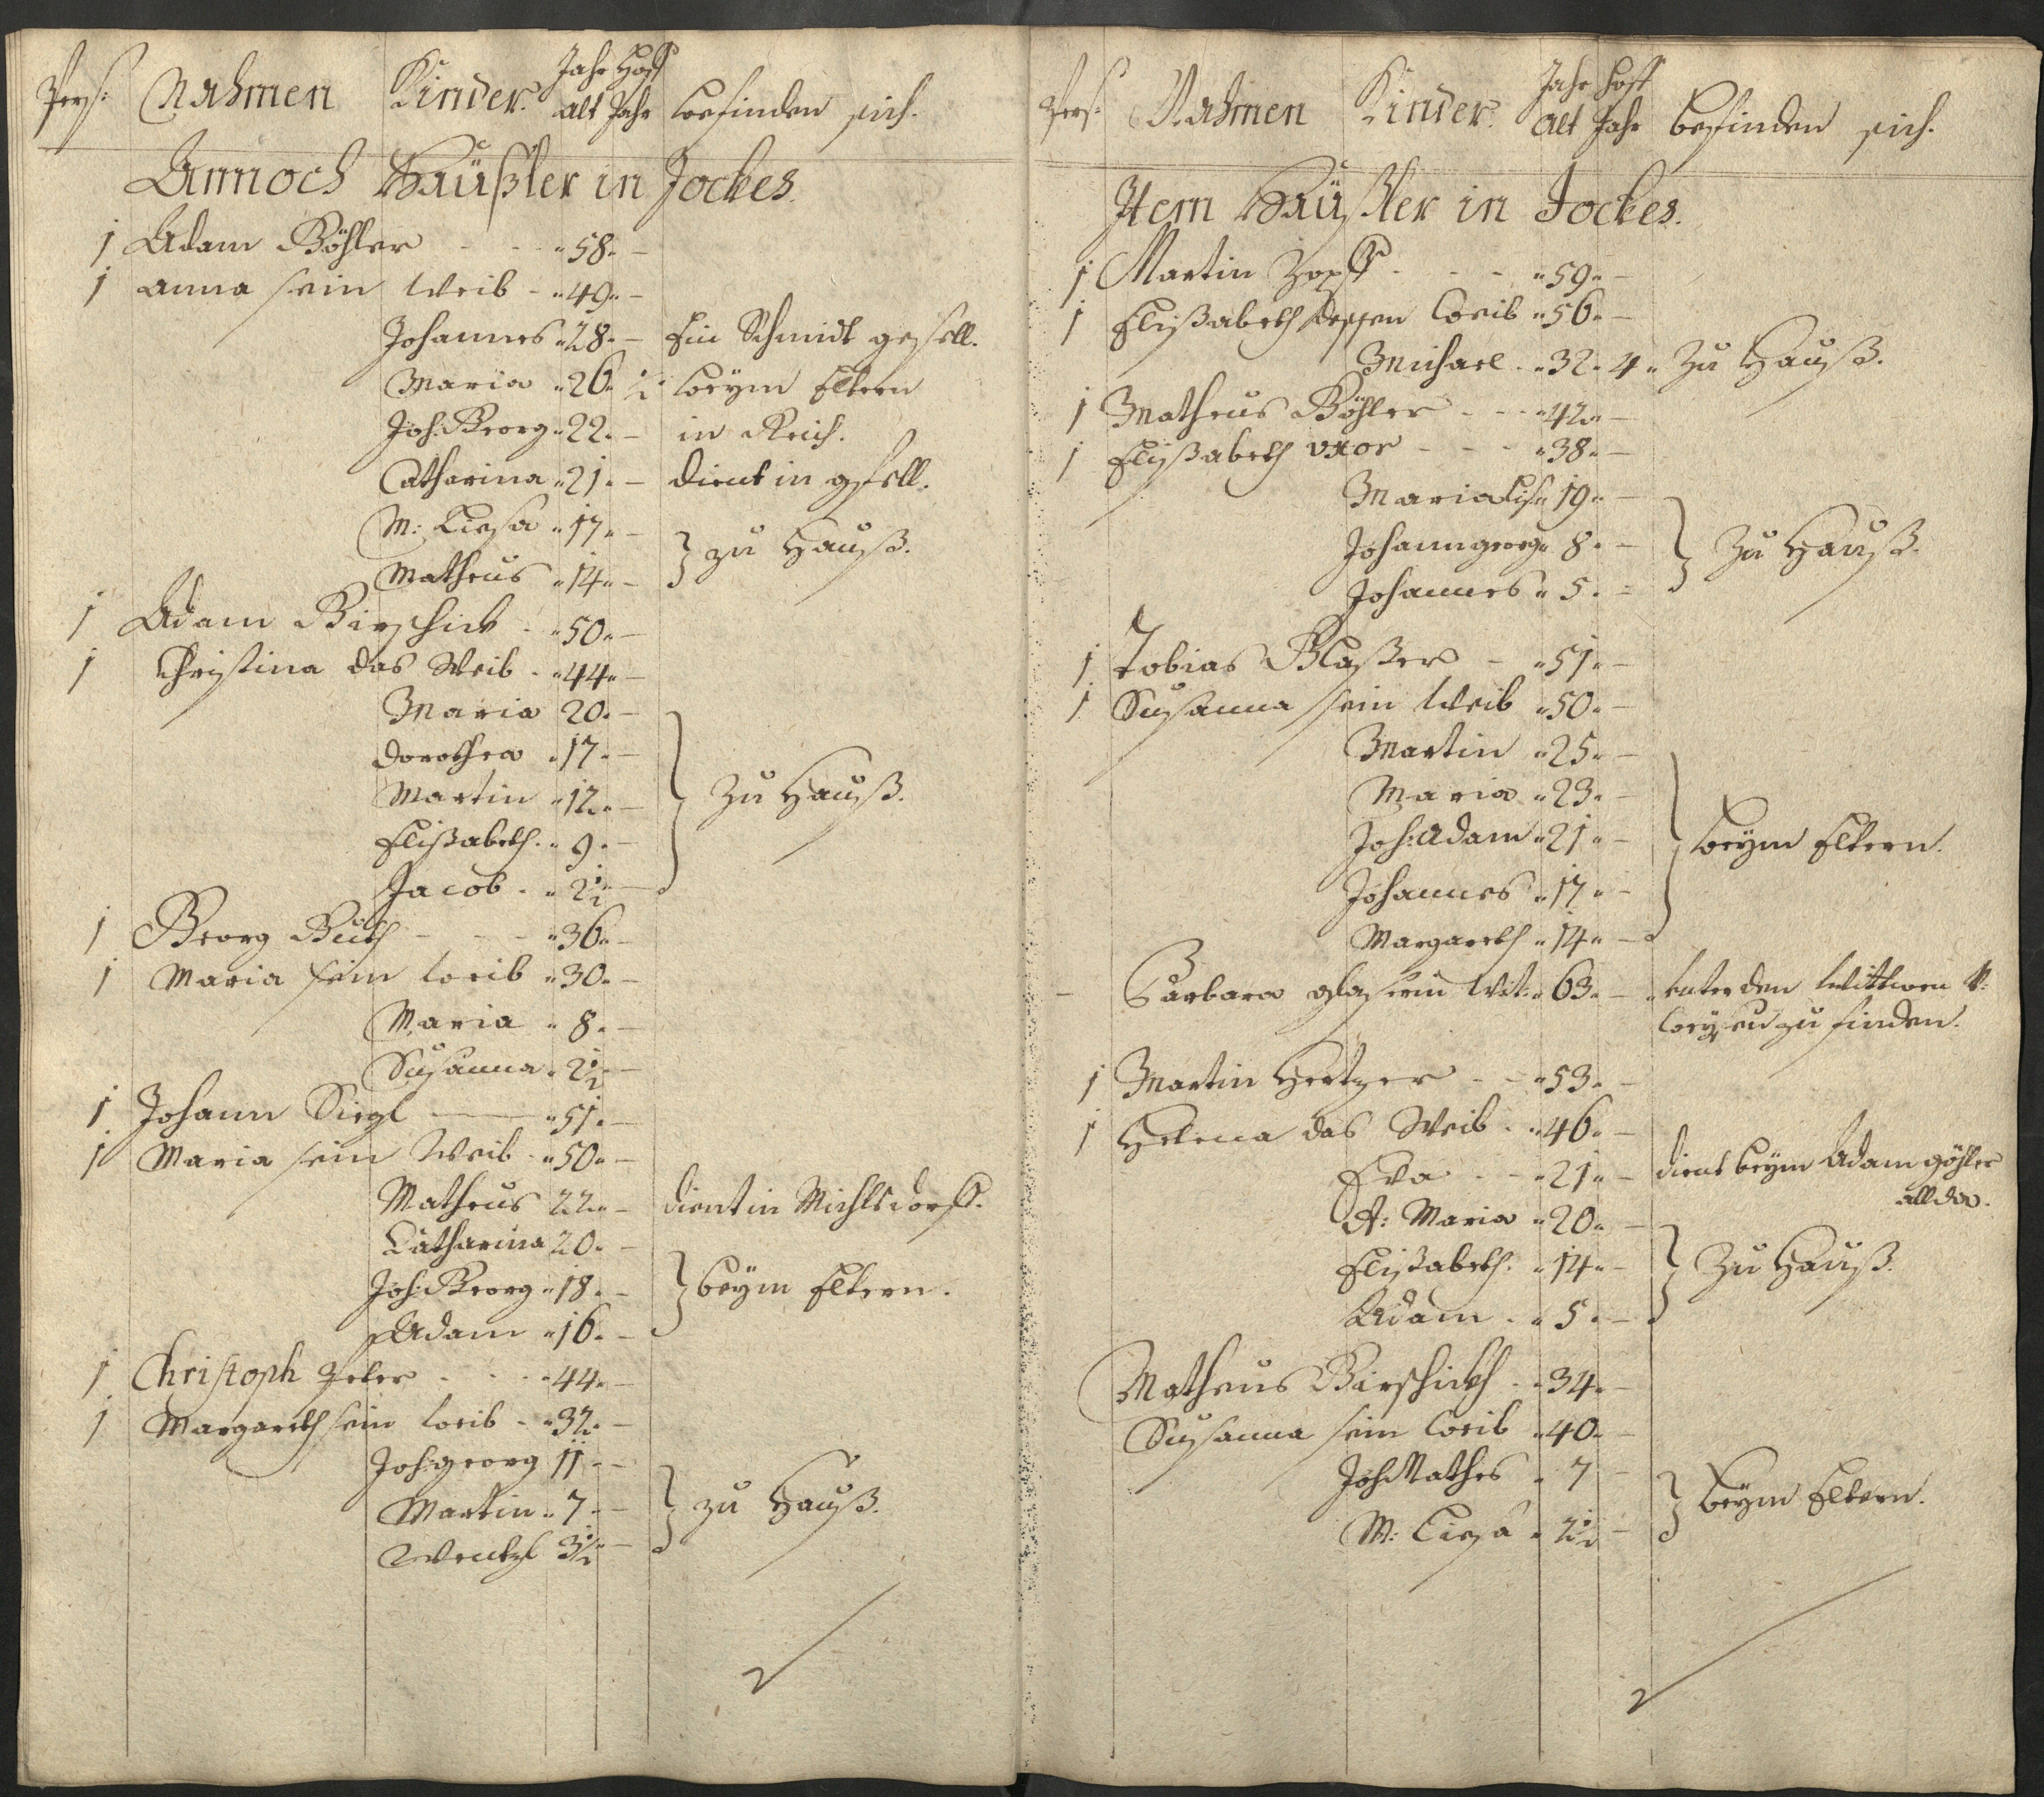 Pers: Nahmen Kinder. Jahr alt Hoff Jahr befinden sich.
Annoch Häußler in Jockes.
1 Adam Göhler - - - 58. -
1 Anna sein Weib - 49. -
Johannes 28. - Ein Schmidt gesell.
Maria 26. ½ beym Eltern
Joh: Georg 22. - in Reich.
Catharina 21. - dient in gsell.
M: Liesa 17. -
Matheus 14. - } zu Hauß.
1 Adam Girschick - 50. -
1 Christina das Weib - 44. -
Maria 20. -
Dorothea 17. -
Martin 12. - } Zu Hauß.
Elisabeth. 9. -
Jacob - 2½ -
1 Georg Güth - - - 36. -
1 Maria sein weib 30. -
Maria 8. -
Susanna 2½ -
1 Johann Siegl - 51. -
1 Maria sein Weib - 50. -
Matheus 22. - dient in Michlsdorff.
Catharina 20. -
Joh: Georg 18. - } beym Eltern.
Adam 16. -
1 Christoph Peter - - - 44. -
1 Margareth sein weib - 32. -
Joh: georg 11 - -
Martin 7. - } zu Hauß.
Wentzl 3½ -
Pers: Nahmen Kinder. Jahr alt Hoff Jahr befinden sich.
Item Häußler in Jockes.
1 Martin Zopff - - - 59. -
1 Elißabeth dessen weib 56. -
Michael - 32. 4. Zu Hauß.
1 Matheus Göhler - - - 42. -
1 Elißabeth uxor - - - 38. -
Maria Lis. 19. -
Johann georg 8. - } Zu Hauß.
Johannes 5. -
1 Tobias Glaßer - 51. -
1 Susanna sein Weib 50. -
Martin 25. -
Maria 23. -
Joh: Adam 21. - } beym Eltern.
Johannes 17. -
Margareth 14. -
- Barbara glaserin Wit: 63. - unter den Wittwen
zu finden.
1 Martin Hertzer - - 53. -
1 Helena das Weib - 46. -
Eva - - 21. - dient beym Adam göhler
allda.
A: Maria 20. -
Elißabeth. 14. - } Zu Hauß.
Adam - 5. -
Matheus Girschickh - 34. -
Susanna sein weib 40. -
Joh: Mathes 7 -
M: Liesa 2½ - } beym Eltern.